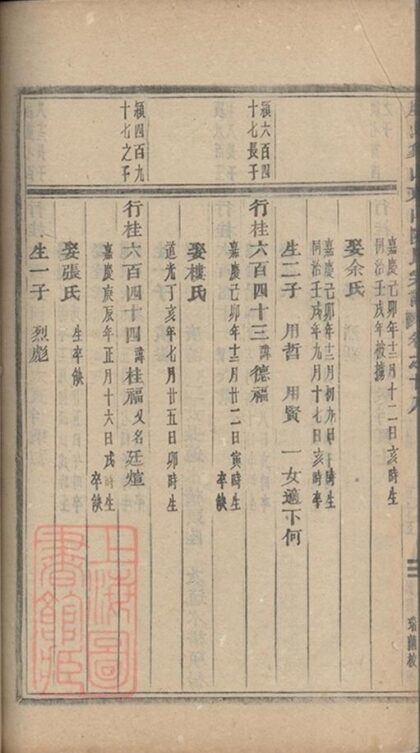 嘉慶己卯年十二月十二日亥時生
同治壬戌年被擄
娶余氏
嘉慶己卯年十二月初九日子時生
同治壬戌年九月十七日亥時卒
生二子 用哲 用賢 一女適下何
穎六百四
十七長子
行桂六百四十三諱德福
嘉慶己卯年十二月廿二日寅時生
卒缺
娶樓氏
道光丁亥年七月廿五日卯時生
卒缺
穎四百九
十七之子
行桂六百四十四諱桂福又名廷煊
嘉慶庚辰年正月十六日戌時生
卒缺
娶張氏
生卒缺
生一子 烈彪
上海圖
書館藏